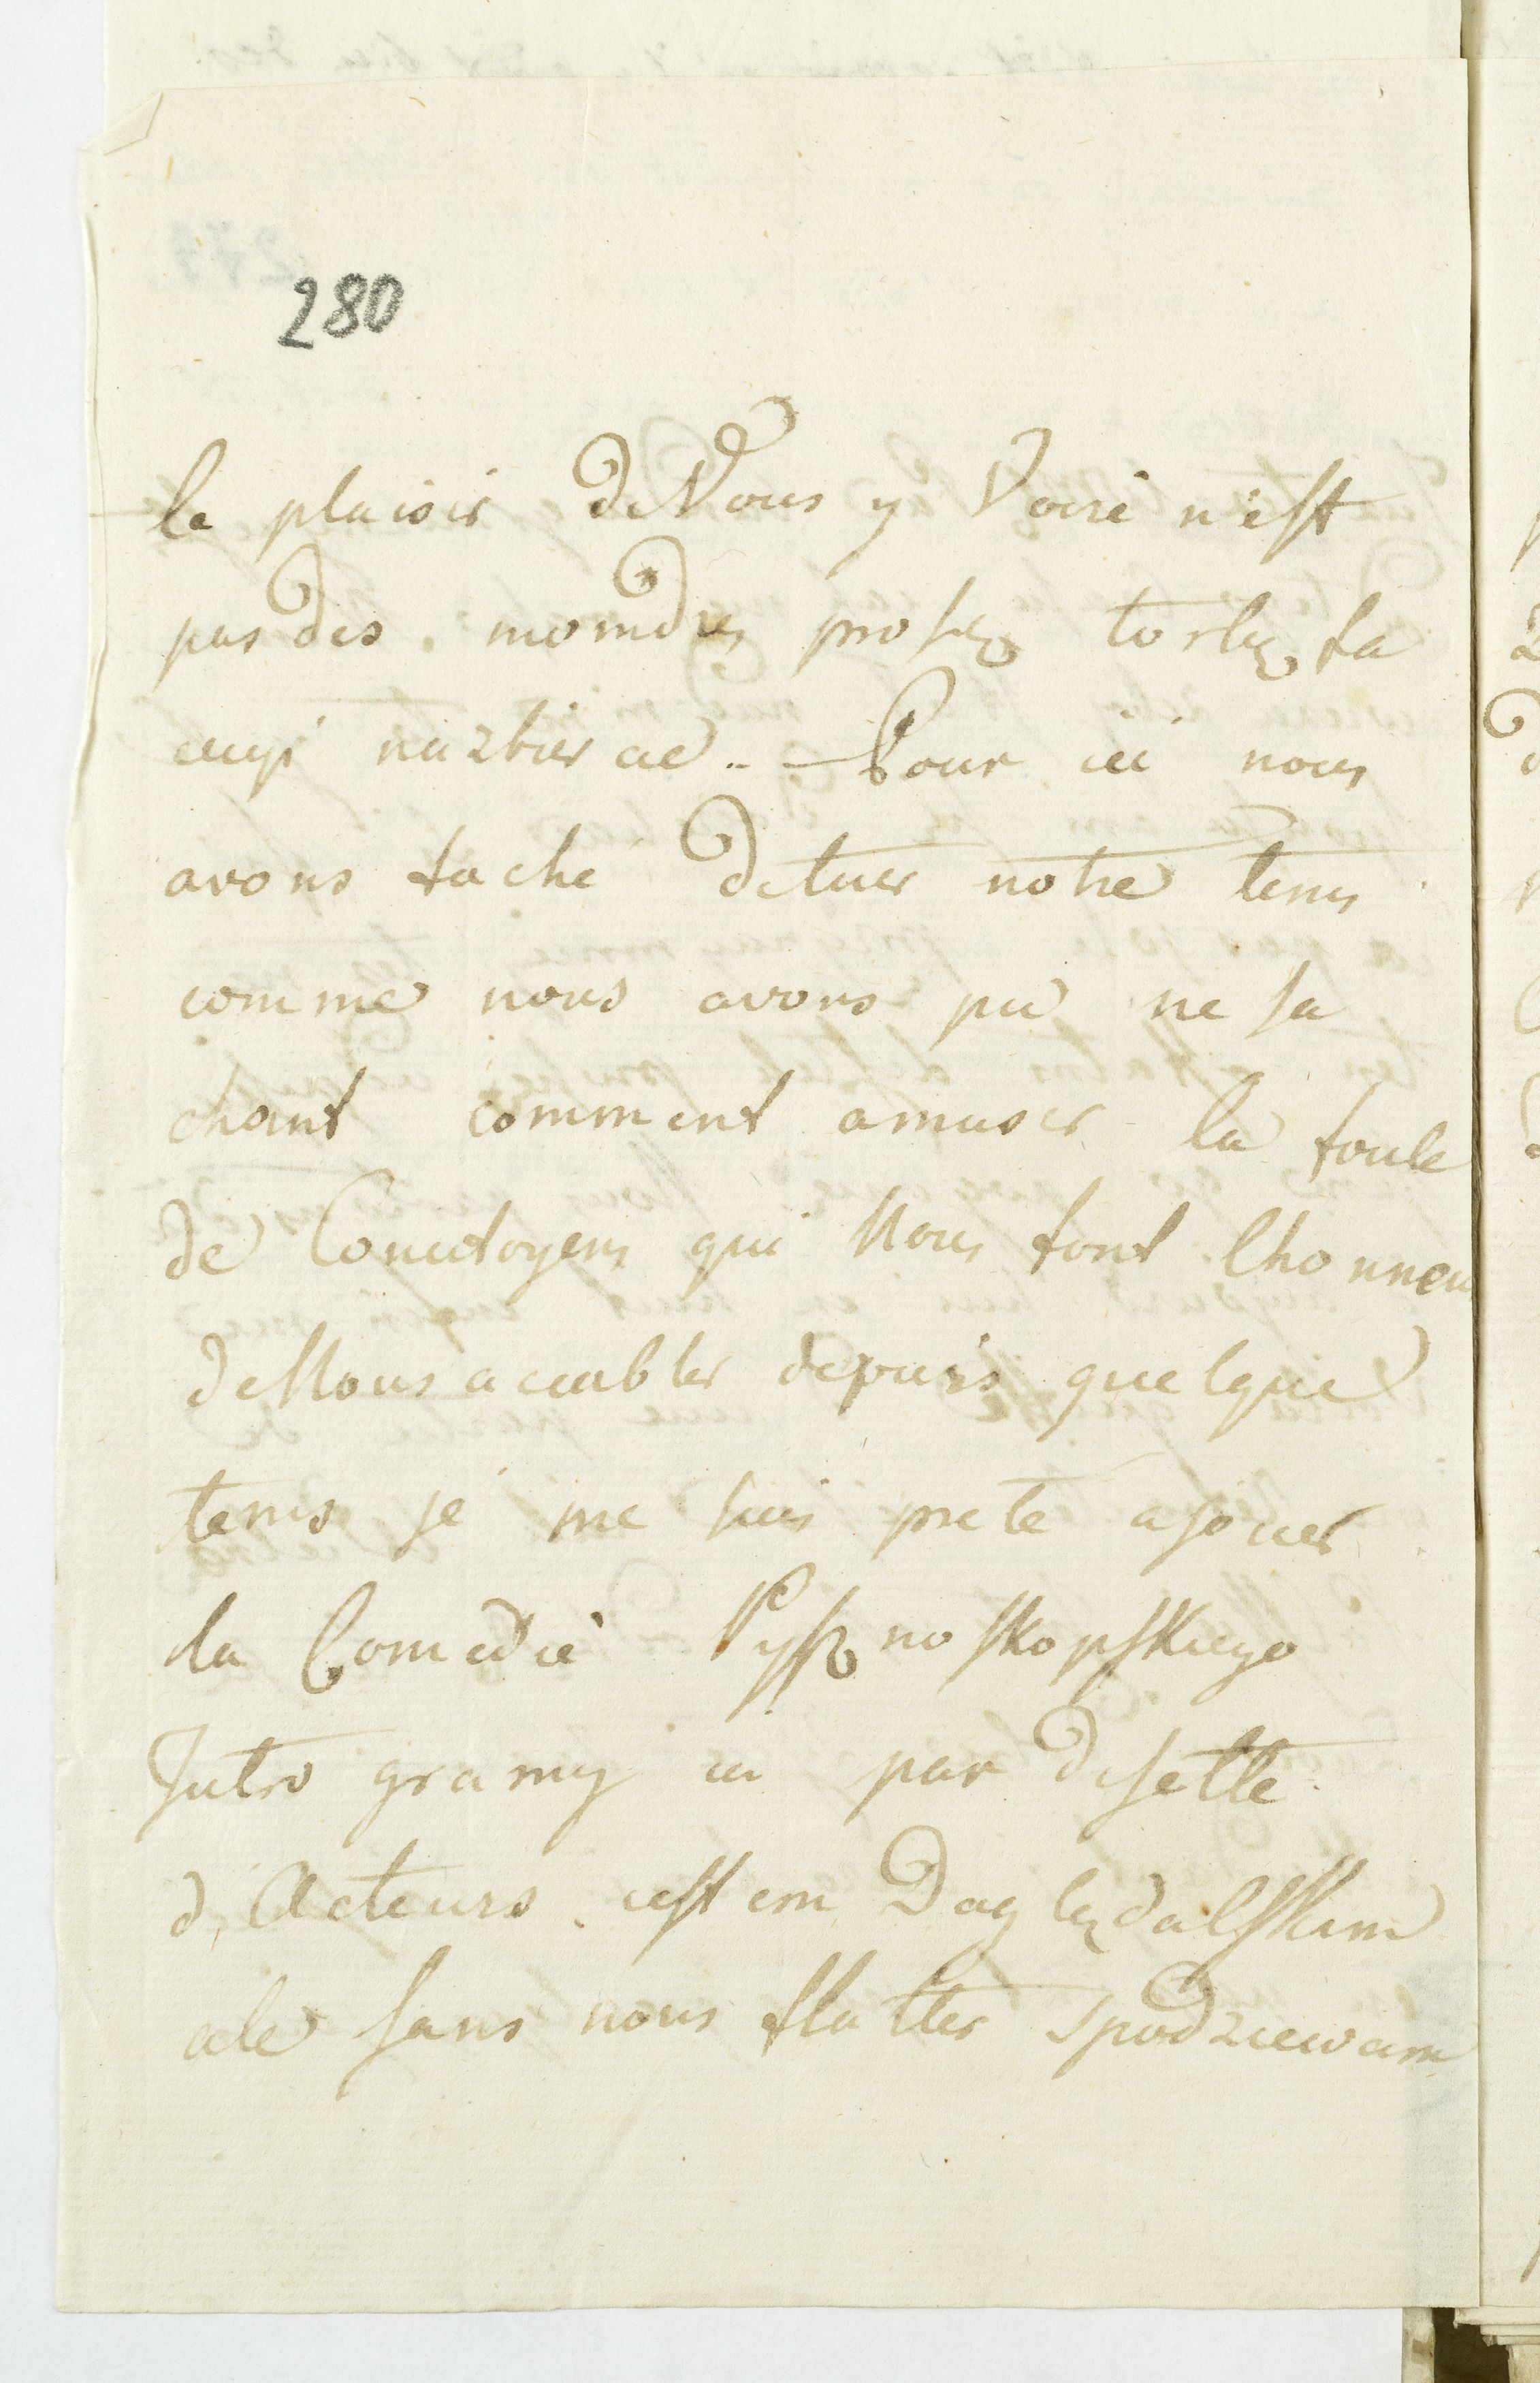 280
le plaisir de Vous y Voire n'est
pas des moindres proszę torbę ta
nazbierac .. Pour ici nous
avons taché de tuer notre tems
comme nous avons pu ne sa
chant comment amuser la foule
de Concitoyens qui Nous font lhonneu
de Nous acuabler depuis quelque
tems je me suis preté a jouer
la Comedie Pyszno skopskiego
Jutro gramy ia par disette
d, Acteurs iestem Dąg lędalskim
ale sans nous flatter spodziewam